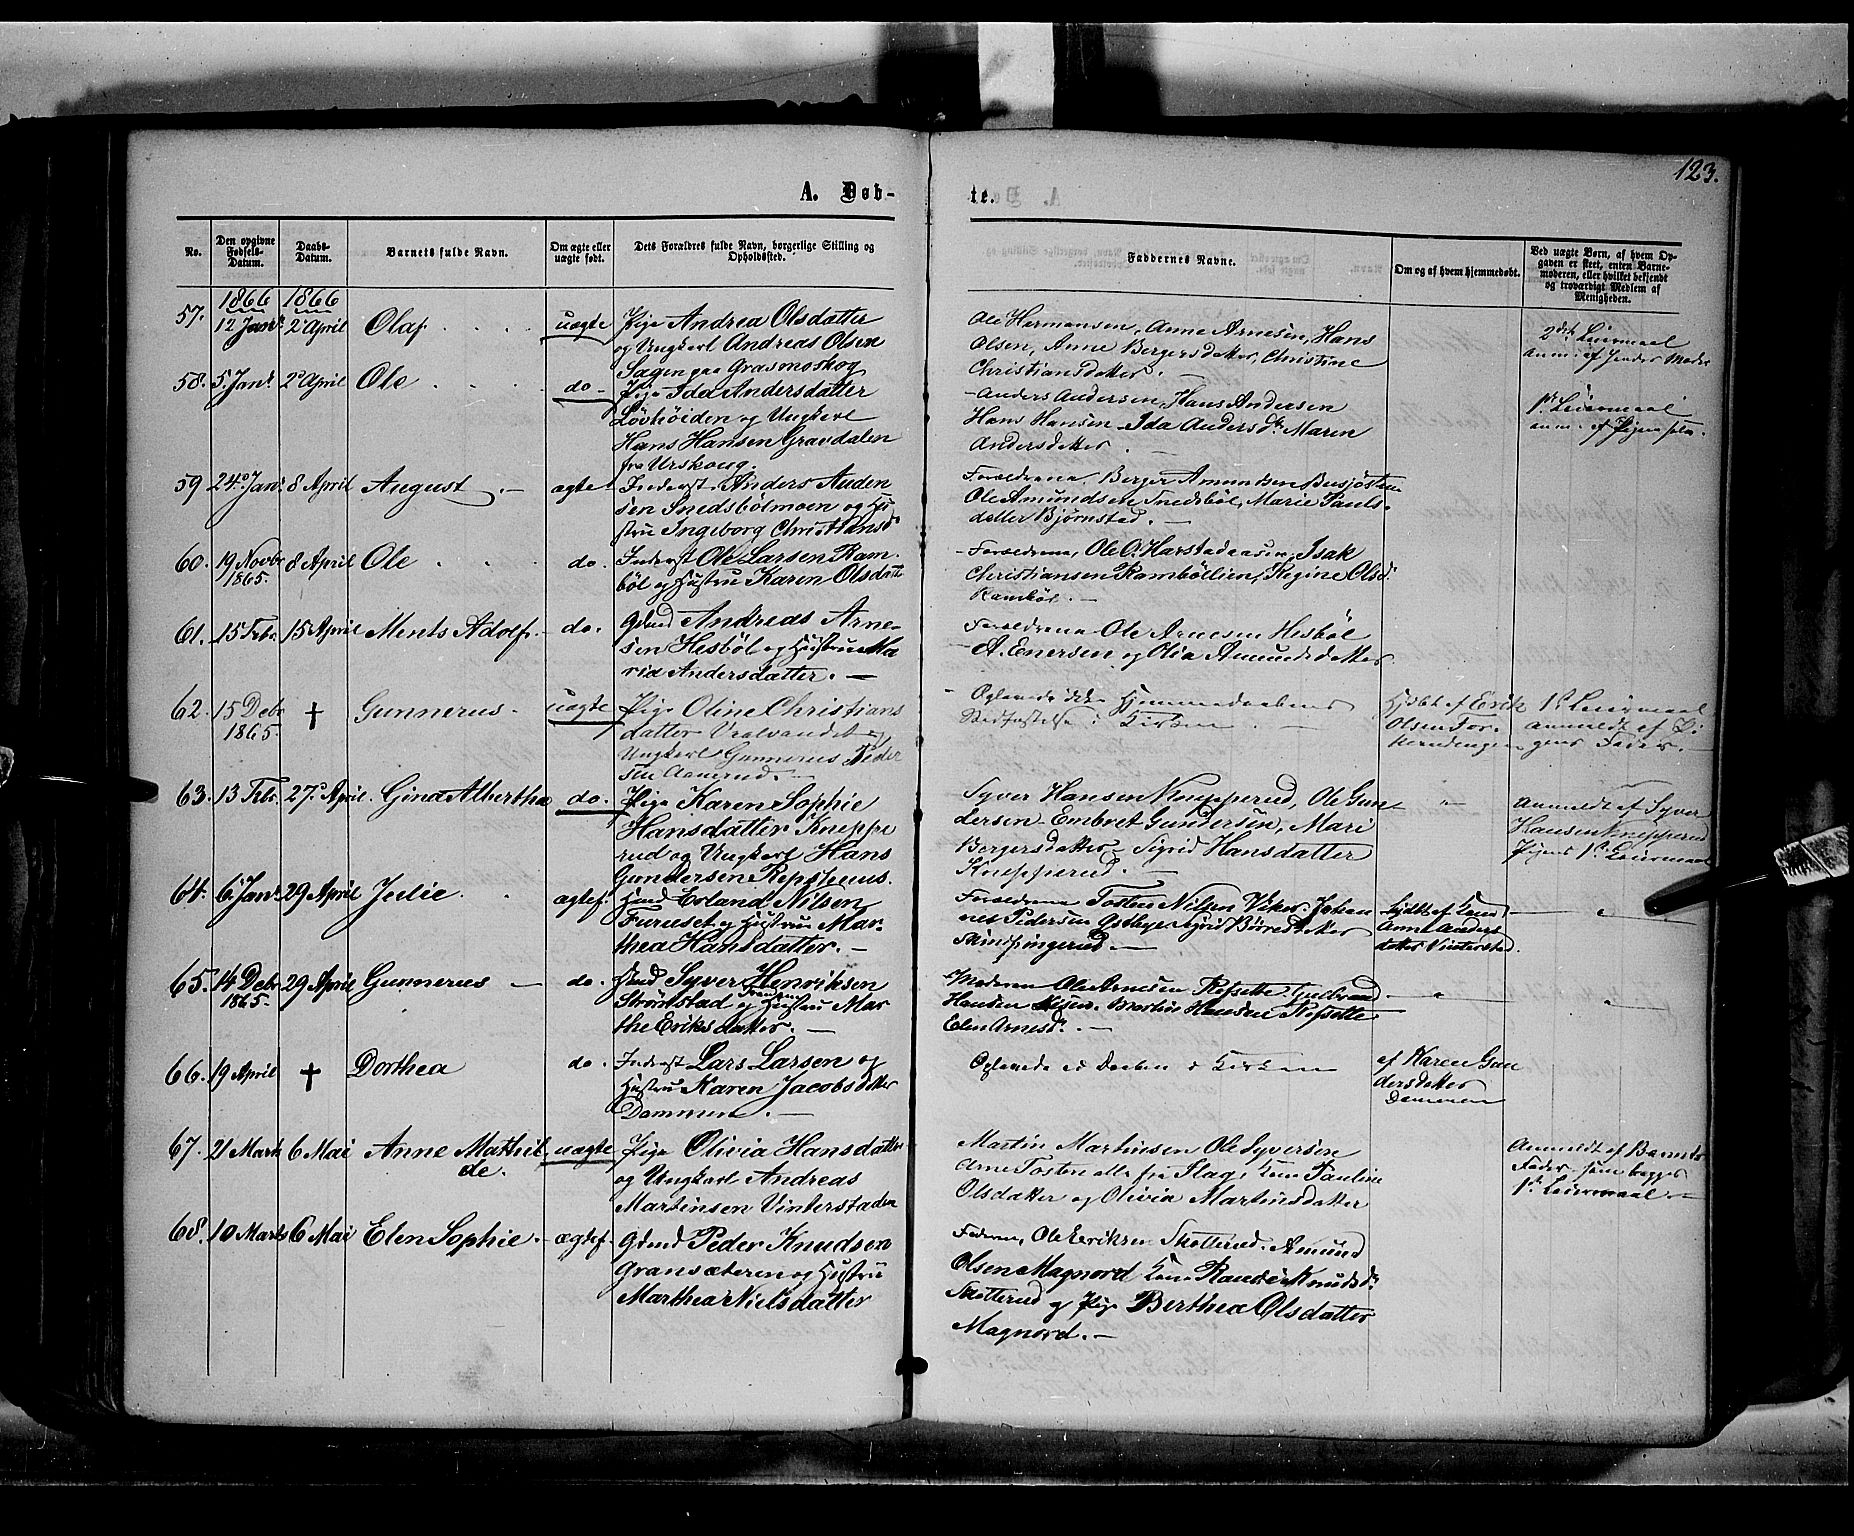 123.
A. Døb-
te.
No.
Den opgivne Fødsels-Datum.
Daabs-Datum.
Barnets fulde Navn.
Om ægte eller uægte født.
Dets Forældres fulde Navn, borgerlige Stilling og Opholdssted.
Faddernes Navne.
Om og af hvem hjemmedøbt.
Ved uægte Børn, af hvem Opgaven er skeet, enten Barnemoderen, eller hvilket bekjendt og troværdigt Medlem af Menigheden.
1866 1866
57. 12 Jan. 2 April Olaf uægte Pige Andrea Olsdatter
og Ungkarl Andreas Olsen
Sagen paa Grasmoskog
Ole Hermansen, Anne Arnesen, Hans
Olsen, Anne Bergersdatter, Christine
Christiansdatter.
2det Leiermaal
anm. af
58. 5 Jan. 2 April Ole do Pige Ida Andersdatter
Løvhöiden og Ungkarl
Hans Hansen Gravdalen
fra Urskoug.
Anders Andersen, Hans Andersen
Hans Hansen Ida Andersd. Maren
Andersdatter
1ste Leiermaal
anm. af Pigen selv.
59 24 Jan. 8 April August ægte Inderst Anders Auden
sen Snedsbölmoen og Hu
stru Ingeborg Christiansd.
Forældrene, Berger Amundsen
Ole Amundsen Snedsböl, Marie Pauls-
datter Bjørnstad.
60. 19 Novbr 1865. 8 April Ole do. Inderst Ole Larsen Ram-
böl og Hustru Karen Olsdatt
Forældrene, Ole O. Harstadaasen, Isak
Christiansen Rambölien, Regine Olsd.
Ramböl.
61. 15 Febr. 15 April Ments Adolf. do. Gdmd Andreas Arne-
sen Hesböl og Hustru Ma
ria Andersdatter.
Forældrene Ole Arnesen Hesböl
A. Enersen og Olia Amundsdatter
62. 15 Debr 1865. † Gunnerus uægte Pige Oline Christians
datter Vralvandet og
Ungkarl Gunnerus Peder
sen Aamrud.
Oplevede ikke Hjemmedaabens
Stadfæstelse i Kirken
Hjdbt af Erik
Olsen
1ste Leiermaal
anmeldt af Pi
gens Fader.
63. 13 Febr. 27 April. Gina Alberthea do. Pige Karen Sophie
Hansdatter Kneppe
rud og Ungkarl Hans
Gundersen Repshuus.
Syver Hansen Knepperud, Ole Gun-
dersen Embret Gundersen, Mari
Bergersdatter Sigrid Hansdatter
Knepperud.
"
Anmeldt af Syver
Hansen Knepperud
Pigens 1ste Leiermaal
64. 6 Jan. 29 April Julie ægtef. Gmd Erland Nilsen
Furuset og Hustru Mar-
thea Hansdatter.
Forældrene Tosten Nilsen Viker. Johan
nes Pedersen Sigrid Børresdatter
Hjdbt af Kone
Anne Anders
datter Vinterstad.
"
65. 14 Debr 1865. 29 April Gunnerus do. Gmd Syver Henriksen
Strørkstad og Hustru Mar
the Eriksdatter.
Moderen Ole Arnesen Refsette. Gudbrand
Hansen Martin Hansen Refsette
Elen Arnesd.
"
"
66. 19 April † Dorthea do. Inderst Lars Larsen og
Hustru Karen Jacobsdatter
Dammen.
Oplevede ei Daaben i Kirken
af Karen Gun
dersdatter
Dammen
67. 21 Marts 6 Mai Anne Mathil-
de. uægte Pige Olivia Hansdatter
og Ungkarl Andreas
Martinsen Vinterstaden
Martin Martinsen Ole Syversen
Arne Tosten alle fra Flag, Kone Pauline
Olsdatter og Olivia Martinsdatter
Anmeldt af Barnets
Fader, som begges
1ste Leiermaal
68. 10 Marts 6 Mai Elen Sophie. ægtef. Gdmd Peder Knudsen
Gransæteren og Hustru
Marthea Nielsdatter
Faderen, Ole Eriksen Skotterud. Amund
Olsen Magnord Kone Randi Knudsdr
Skotterud og Pige Berthea Olsdatter
Magnord.